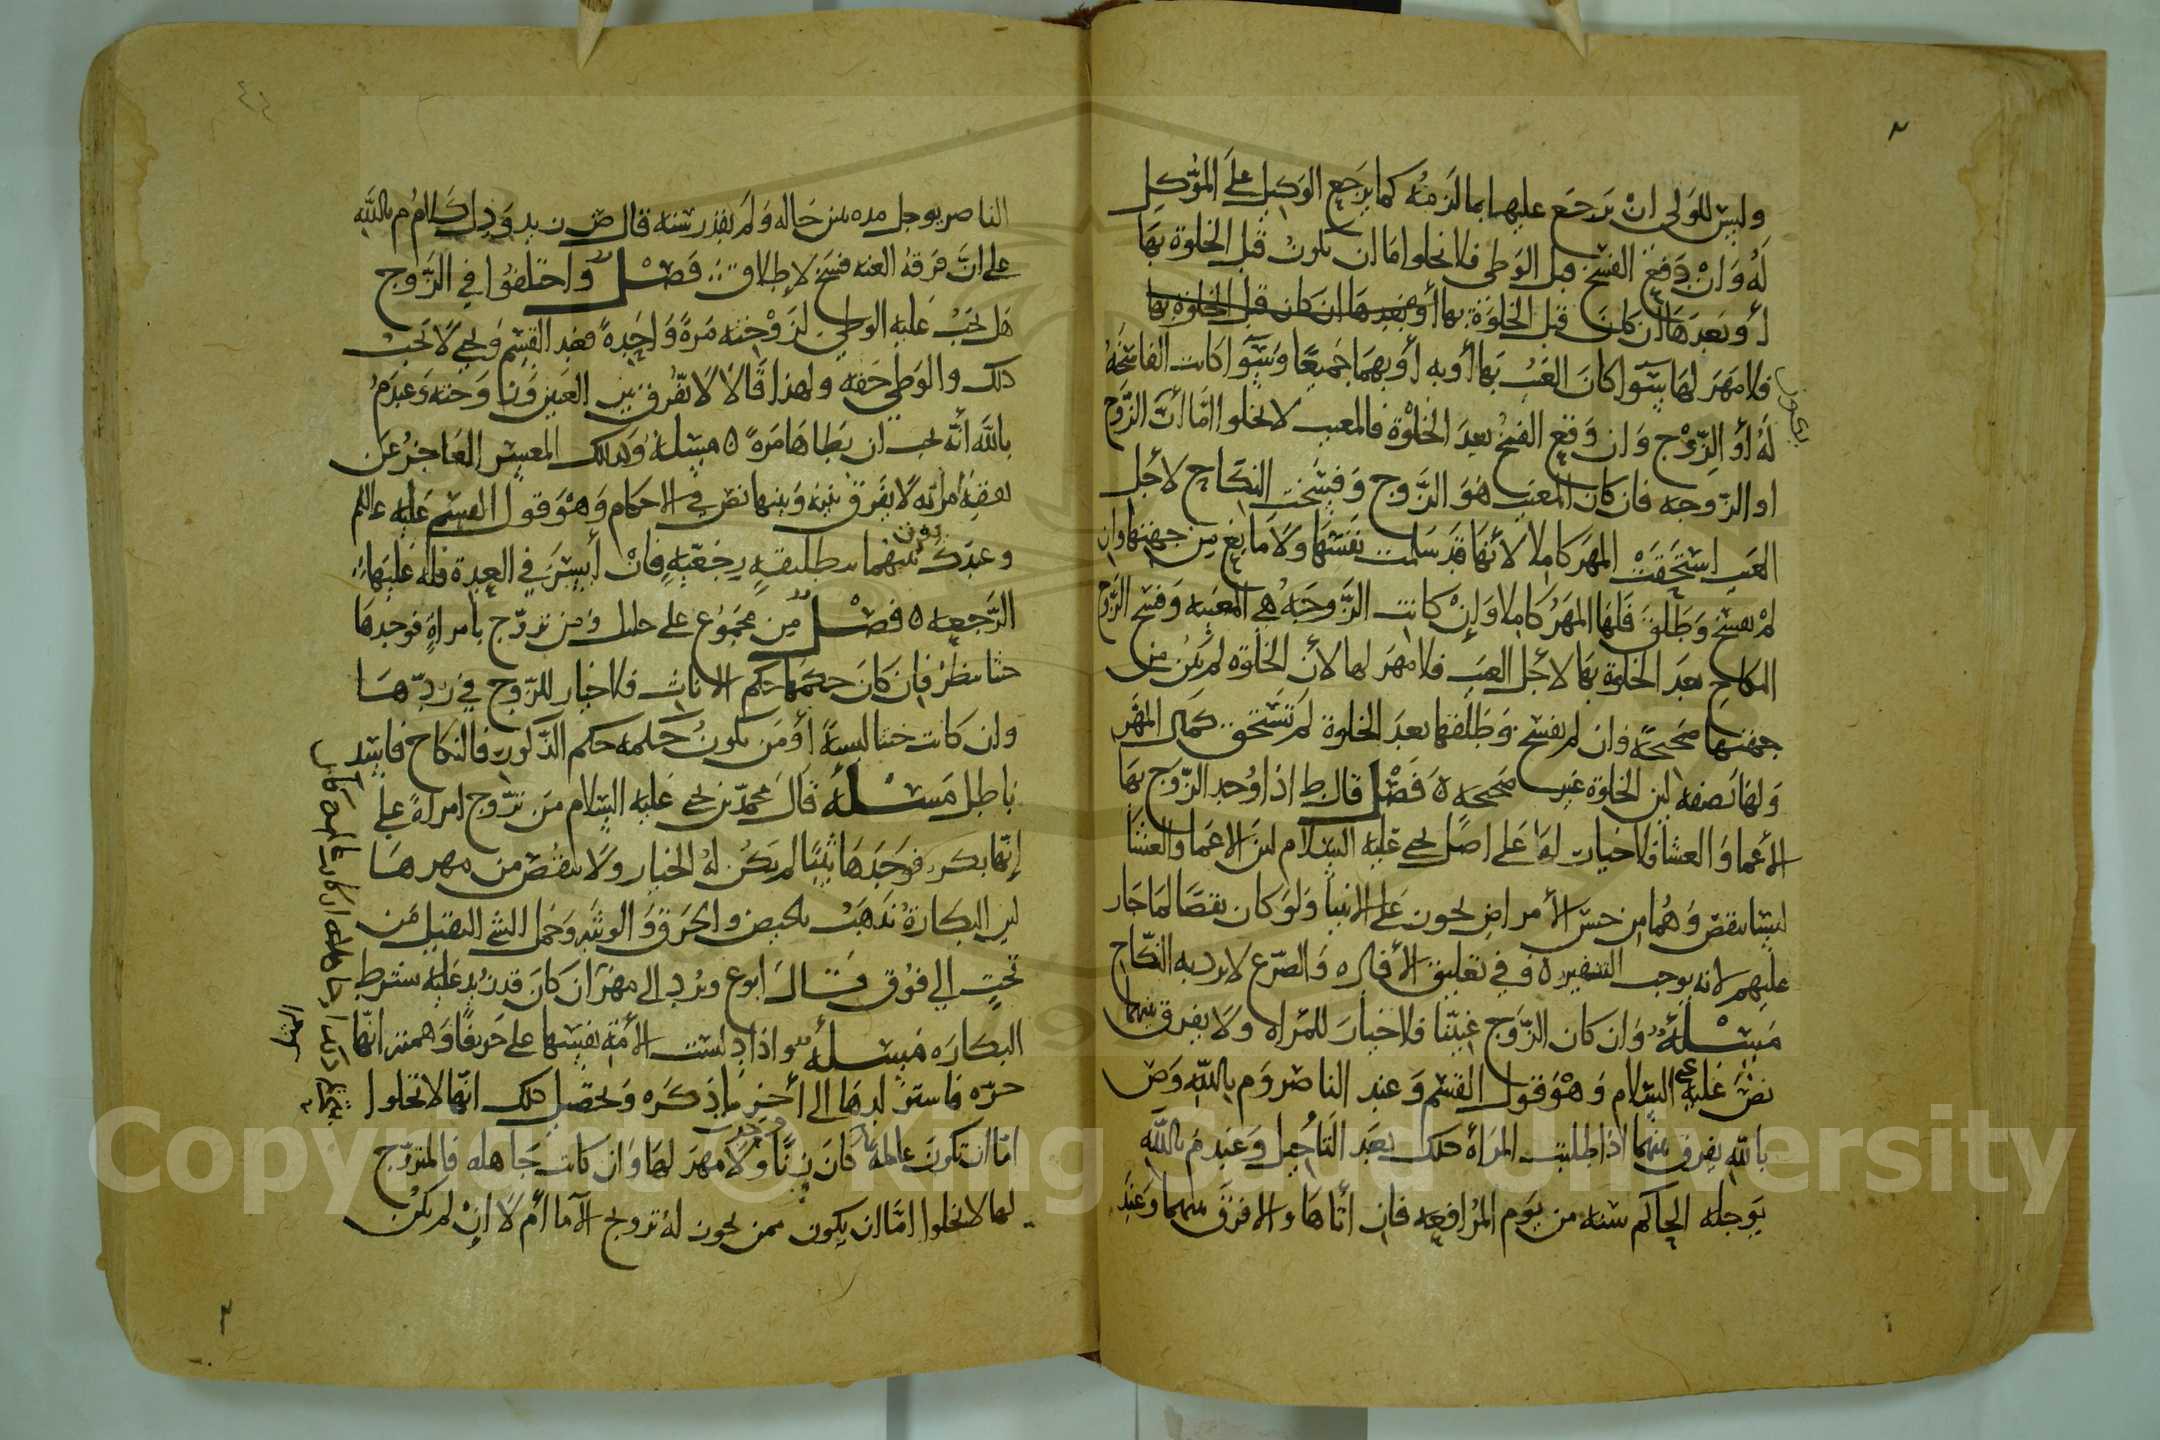 وليس للولي ان يرجع عليها بما لزمه كما يرجع الوكيل على المؤكل
له وان وقع الفسخ قبل الوطي فلا يخلوا اما ان يكون قبل الخلوة بها
أو بعدها ان كان قبل الخلوة بها أو بعدها ان كان قبل الخلوة بها
فلا مهر لها سوا كان العيب بها أو به أو بهما جميعا وسوا كانت الفاسخه
له أو الزوج وان وقع الفسخ بعد الخلوة فالمعيب لا يخلوا اما أن الزوج
او الزوجه فان كان المعيب هو الزوج وفسخت النكاح لأجل
العيب استحقت المهر كاملا لأنها قد سلمت نفسها ولا مانع من جهتها وان
لم يفسخ وطلق فلها المهر كاملا وان كانت الزوجه هي المعيبه وفسخ الزوج
النكاح بعد الخلوة بها لأجل العيب فلا مهر لها لأن الخلوة لم تكن من
جهتها صحيحة وان لم يفسخ وطلقها بعد الخلوة لم تستحق كمال المهر
ولها نصفه لين الخلوة غير صحيحه ٥ فصل قال ط اذا وجد الزوج بها
الأعما والعشا فلا خيار لها على اصل يحى عليه السلام لين الاعما والعشا
ليسا بنقص وهما من جنس الأمراض يجوز على الانبيا ولو كان نقصا لما جاز
عليهم لانه يوجب التنفير ٥ و في تعليق الأفاده والصرع لا يرد به النكاح
مسئلة وان كان الزوج عنينا فلا خيار للمراه ولا يفرق بينهما
نص عليه السلام وهو قول القسم وعند الناصر و م بالله وص
بالله يفرق بينهما اذا طلبت المرأة ذلك بعد التأجيل وعند م بالله
يوجله الحاكم سنه من يوم المرافعه فان أتاها والا فرق بينهما وعند
الناصر يوجل مده حاله ولم يقدر سنه قال ص ن يد ودل كلام م بالله
على ان فرقة العنه فسخ لا طلاق فصل واختلفوا في الزوج
هل يجب عليه الوطي لزوجته مرة واحدة فعند القسم ويحيى لا يجب
ذلك والوطي حقه ولهذا قالا لا يفرق بين العنين وزوجته وعند م
بالله أنه يجب ان يطاها مرة ٥ مسئلة وكذلك المعسر العاجز عن
نفقة امرأته لا يفرق بينه وبينها نص في الاحكام وهو قول القسم عليه
وعند ك يفرق بينهما بتطليقة رجعية فان أيسر في العدة فله عليها
الرجعه ٥ فصل من مجموع على خليل ومن تزوج بامراة فوجدها
خنثا ينظر فان كان حكمها حكم الاناث فلا خيار للزوج في ردها
وان كانت خنثا لبسة أو من يكون حكمه حكم الذكور فالنكاح فاسد
باطل مسئلة قال محمد بن يحى عليه السلام من تزوج امراة على
إنها بكر فوجدها ثيبا لم يكن له الخيار ولا ينقص من مهرها
لين البكارة تذهب بالحيض والحرق والوثبه وحمل الشي الثقيل من
تحت الي فوق قال ابو ع ويرد الى مهر ان كان قد زيد عليه بشرط
البكاره مسئلة واذا دلست الأمة نفسها على حر انها
حره فاستولدها الى أخر ما ذكره وتحصيل ذلك انها لا تخلوا
اما ان تكون عالمة كان زنا ولا مهر لها وان كانت جاهله فالمتزوج
لها لا يخلوا اما ان يكون ممن يجوز له تزويج الآما أم لا ان لم يكن